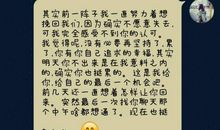 其实前一阵子我一直努力着想
挽回我们,因为确实不愿意失去,
可我完全感受不到你的认可。
我觉得呢,没有必要再坚持了,累
了,你有你自己追求的幸福,其实
明天你不出来是在我意料之内
的,确实你也挺累的。这是我给
你,给自己的最后一个机会吧。
前几天还一直想着怎样让你回
来。突然最后一次找你聊天那
个中午啥都想通了。现在也挺